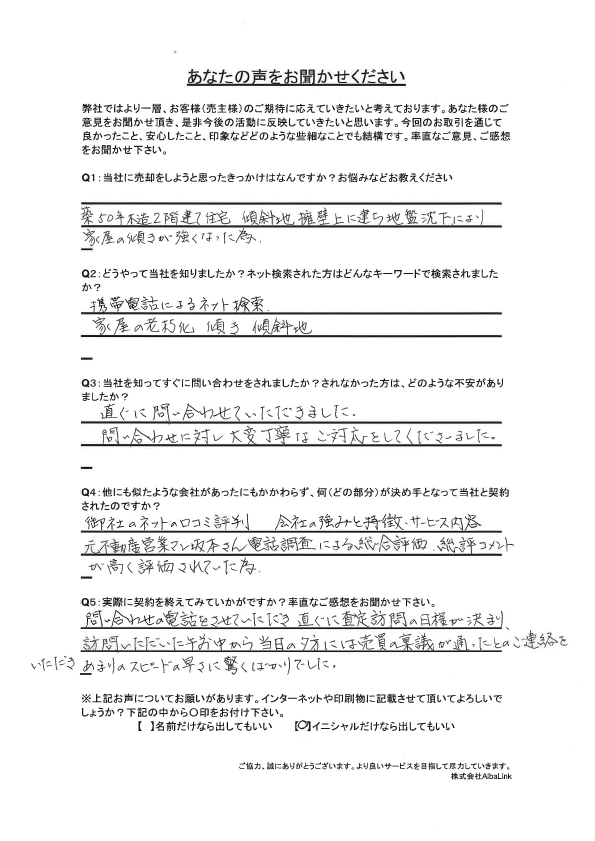 あなたの声をお聞かせください
弊社ではより一層、お客様（売主様）のご期待に応えていきたいと考えております。あなた様のご
意見をお聞かせ頂き、是非今後の活動に反映していきたいと思います。今回のお取引を通じて
良かったこと、安心したこと、印象などどのような些細なことでも結構です。率直なご意見、ご感想
をお聞かせ下さい。
Q1：当社に売却をしようと思ったきっかけはなんですか？お悩みなどお教えください
築50年木造2階建て住宅 傾斜地擁壁上に建ち地盤沈下により
家屋の傾きが強くなった為.
Q2：どうやって当社を知りましたか？ネット検索された方はどんなキーワードで検索されました
か？
携帯電話によるネット検索.
家屋の老朽化 傾き 傾斜地
Q3：当社を知ってすぐに問い合わせをされましたか？されなかった方は、どのような不安があり
ましたか？
直ぐに問い合わせていただきました.
問い合わせに対し大変丁寧なご対応をしてくださいました。
Q4：他にも似たような会社があったにもかかわらず、何（どの部分）が決め手となって当社と契約
されたのですか？
御社のネットの口コミ評判 会社の強みと特徴・サービス内容
元不動産営業マン坂本さん電話調査による総合評価.総評コメント
が高く評価されていた為.
Q5：実際に契約を終えてみていかがですか？率直なご感想をお聞かせ下さい。
問い合わせの電話をさせていただき直ぐに査定訪問の日程が決まり、
訪問いただいた午前中から当日の夕方には売買の稟議が通ったとのご連絡を
いただき あまりのスピードの早さに驚くばかりでした。
※上記お声についてお願いがあります。インターネットや印刷物に記載させて頂いてよろしいで
しょうか？下記の中から〇印をお付け下さい。
【 】名前だけなら出してもいい 【〇】イニシャルだけなら出してもいい
ご協力、誠にありがとうございます。より良いサービスを目指して尽力していきます。
株式会社AlbaLink